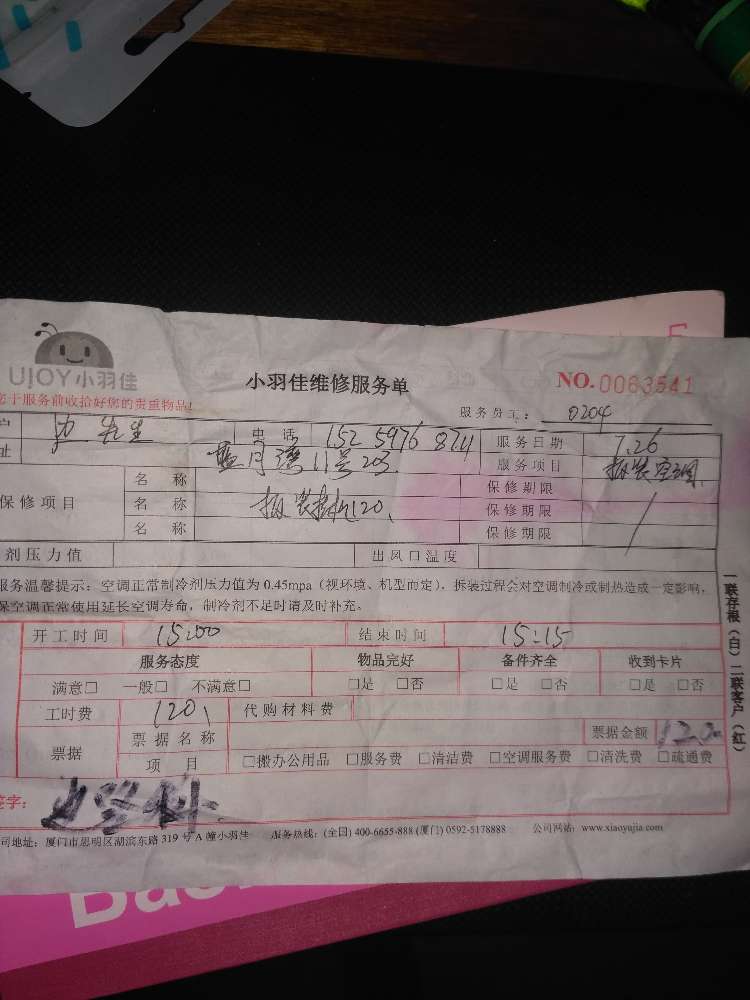 UJOY小羽佳
小羽佳维修服务单
NO.0063541
于服务前收拾好您的贵重物品!
服务员工: 0204
先生
电 话 152 5976 8711
服务日期 7.26
址 蓝月湾11号203
服务项目 拆装空调
保修项目
名 称
保修期限
名 称 拆装挂机120
保修期限
名 称
保修期限
剂压力值
出风口温度
服务温馨提示:空调正常制冷剂压力值为0.45mpa(视环境、机型而定),拆装过程会对空调制冷或制热造成一定影响,
保空调正常使用延长空调寿命,制冷剂不足时请及时补充。
开工时间 15:00
结束时间 15:15
服务态度 物品完好 备件齐全 收到卡片
满意□ 一般□ 不满意□ □是 □否 □是 □否 □是 □否
工时费 120
代购材料费
票据
票据名称
票据金额 120
项 目 □搬办公用品 □服务费 □清洁费 □空调服务费 □清洗费 □疏通费
签字:
司地址:厦门市思明区湖滨东路319号A幢小羽佳 服务热线:(全国)400-6655-888(厦门)0592-5178888 公司网站:www.xiaoyujia.com
一联存根(白)二联客户(红)